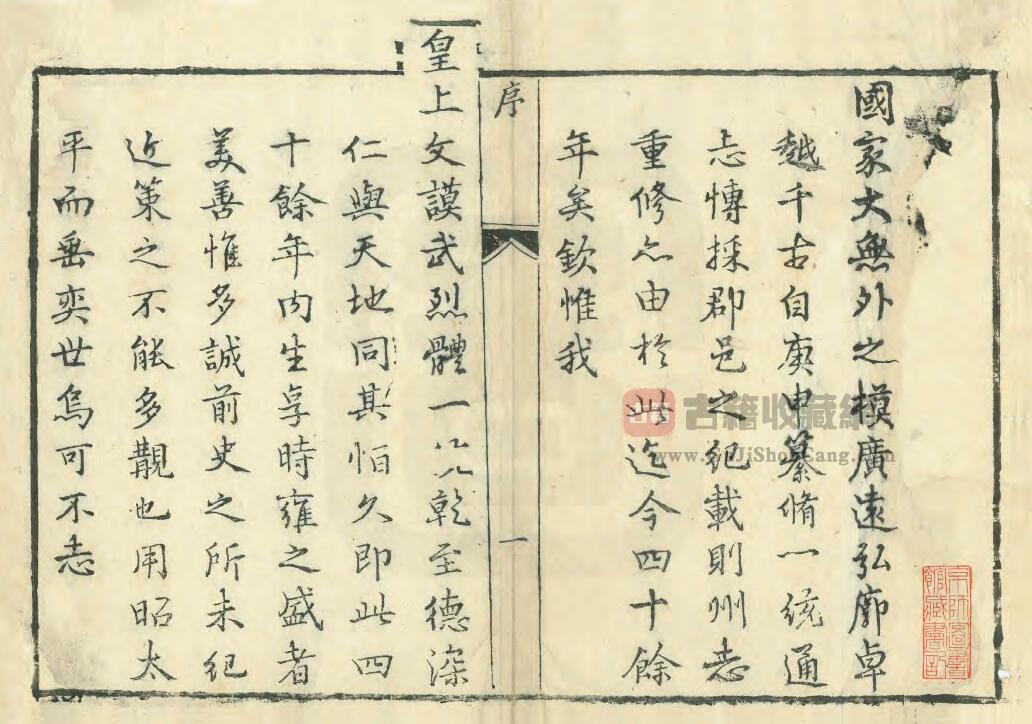 國家大無外之模廣遠弘廓卓
越千古自庚申纂脩一統通
志慱採郡邑之紀載則州志
重修亦由於此迄今四十餘
年矣欽惟我
序
一
皇上文謨武烈體一以乾至德深
仁與天地同其恒久即此四
十餘年内生享時雍之盛者
美善惟多誠前史之所未紀
近策之不能多覯也用昭太
平而垂奕世烏可不志
古籍收藏
京師圖書
館藏書記